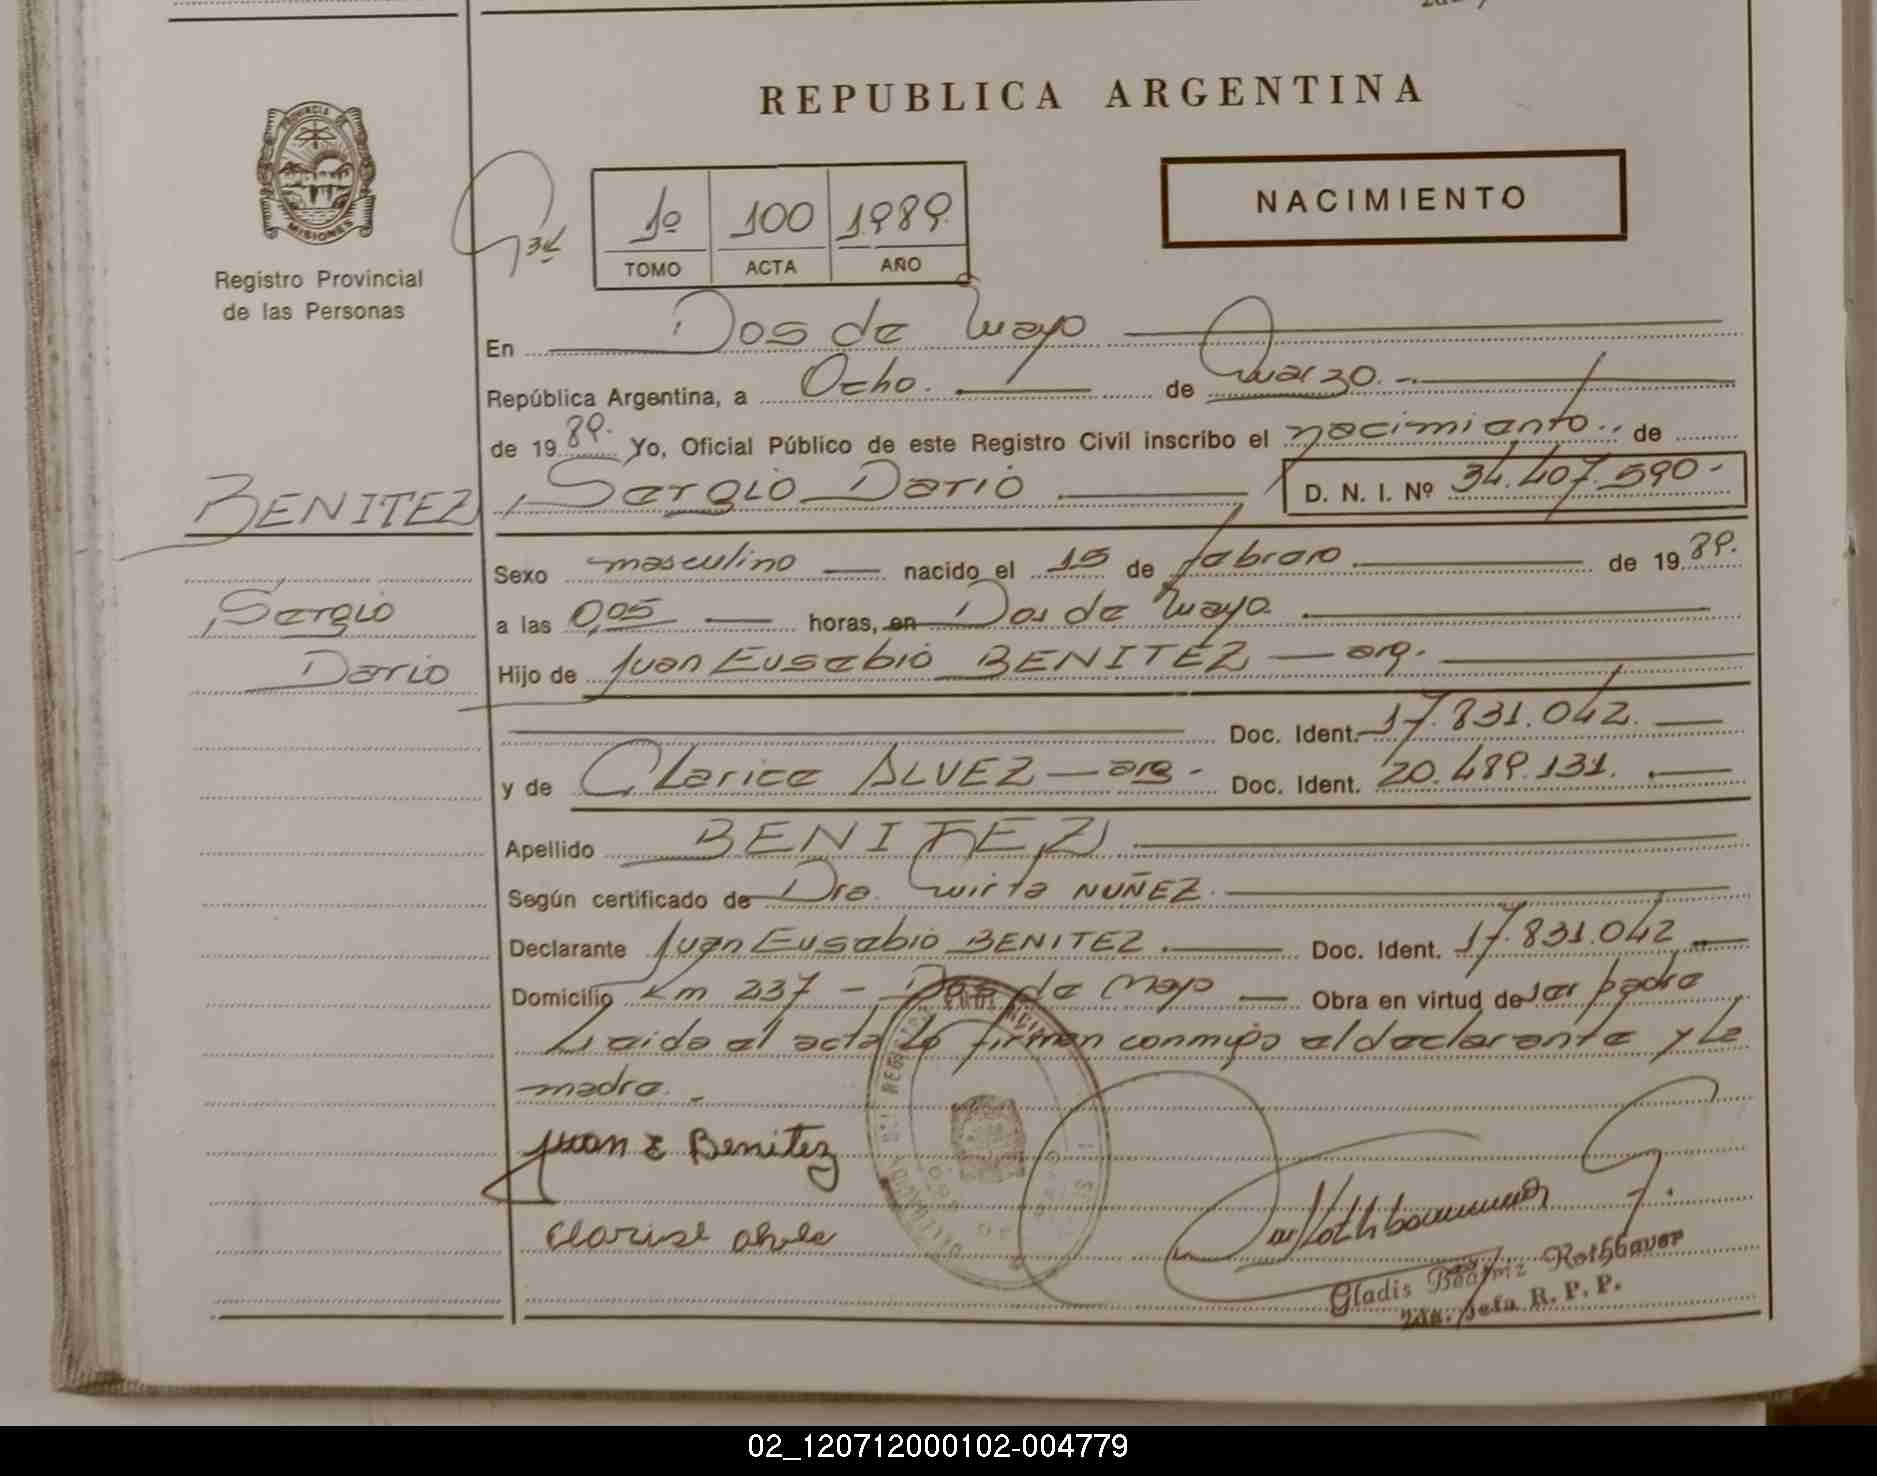 REPUBLICA ARGENTINA
PROVINCIA DE
MISIONES
Registro Provincial
de las Personas
1º 100 1989
TOMO ACTA AÑO
NACIMIENTO
En Dos de Mayo
República Argentina, a Ocho. de Marzo.-
de 1989. Yo, Oficial Público de este Registro Civil inscribo el nacimiento.. de
BENITEZ, Sergio Dario D. N. I. Nº 34.407.590-
Sexo masculino nacido el 15 de febrero de 1989.
Sergio a las 0,05 horas, en Dos de Mayo.
Dario Hijo de Juan Eusebio BENITEZ — arg.
Doc. Ident. 17.831.042.
y de Clarice ALVEZ — arg - Doc. Ident. 20.489.131.
Apellido BENITEZ
Según certificado de Dra. Mirta NUÑEZ.
Declarante Juan Eusebio BENITEZ. Doc. Ident. 17.831.042
Domicilio Km 237 - Dos de Mayo Obra en virtud de ser padre
Leida el acta la firman conmigo el declarante y la
madre.-
Juan E Benitez
Gladis Beatriz Rothbauer
2da. Jefa R. P. P.
02_120712000102-004779